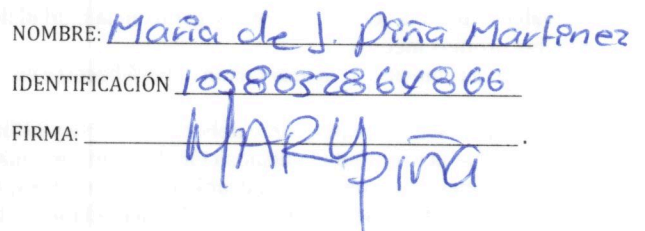 NOMBRE: Maria de J. Piña Martinez
IDENTIFICACIÓN 1058032864866
FIRMA: MARY Piña.